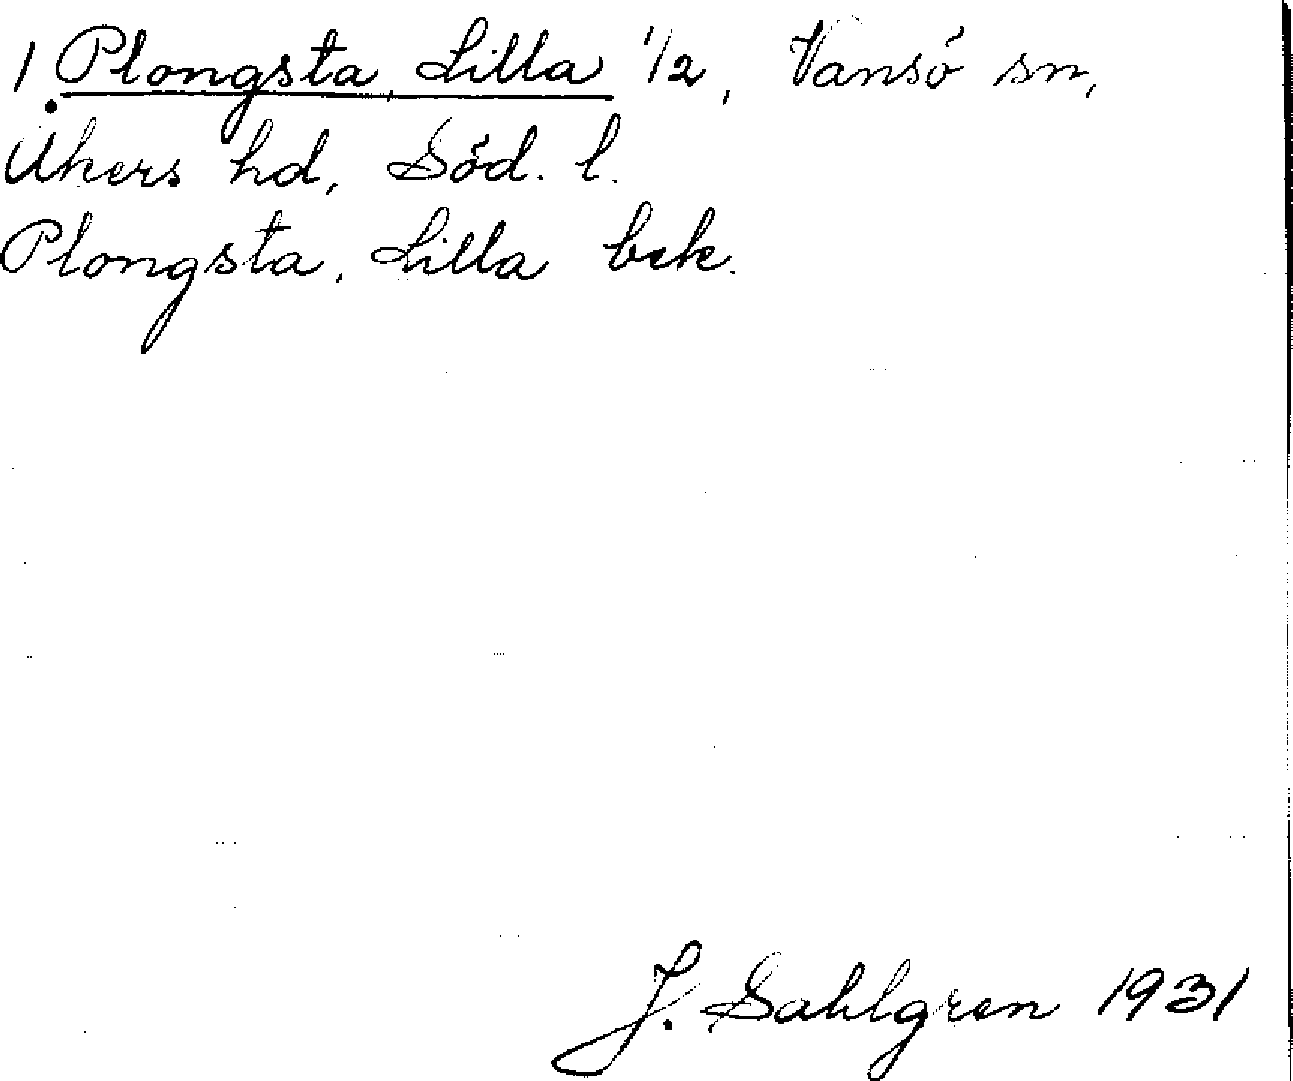 1. Plongsta, Lilla 1/2, Vansö sn,
Åkers hd, Söd. l.
Plongsta, Lilla bek.
J. Sahlgren 1931